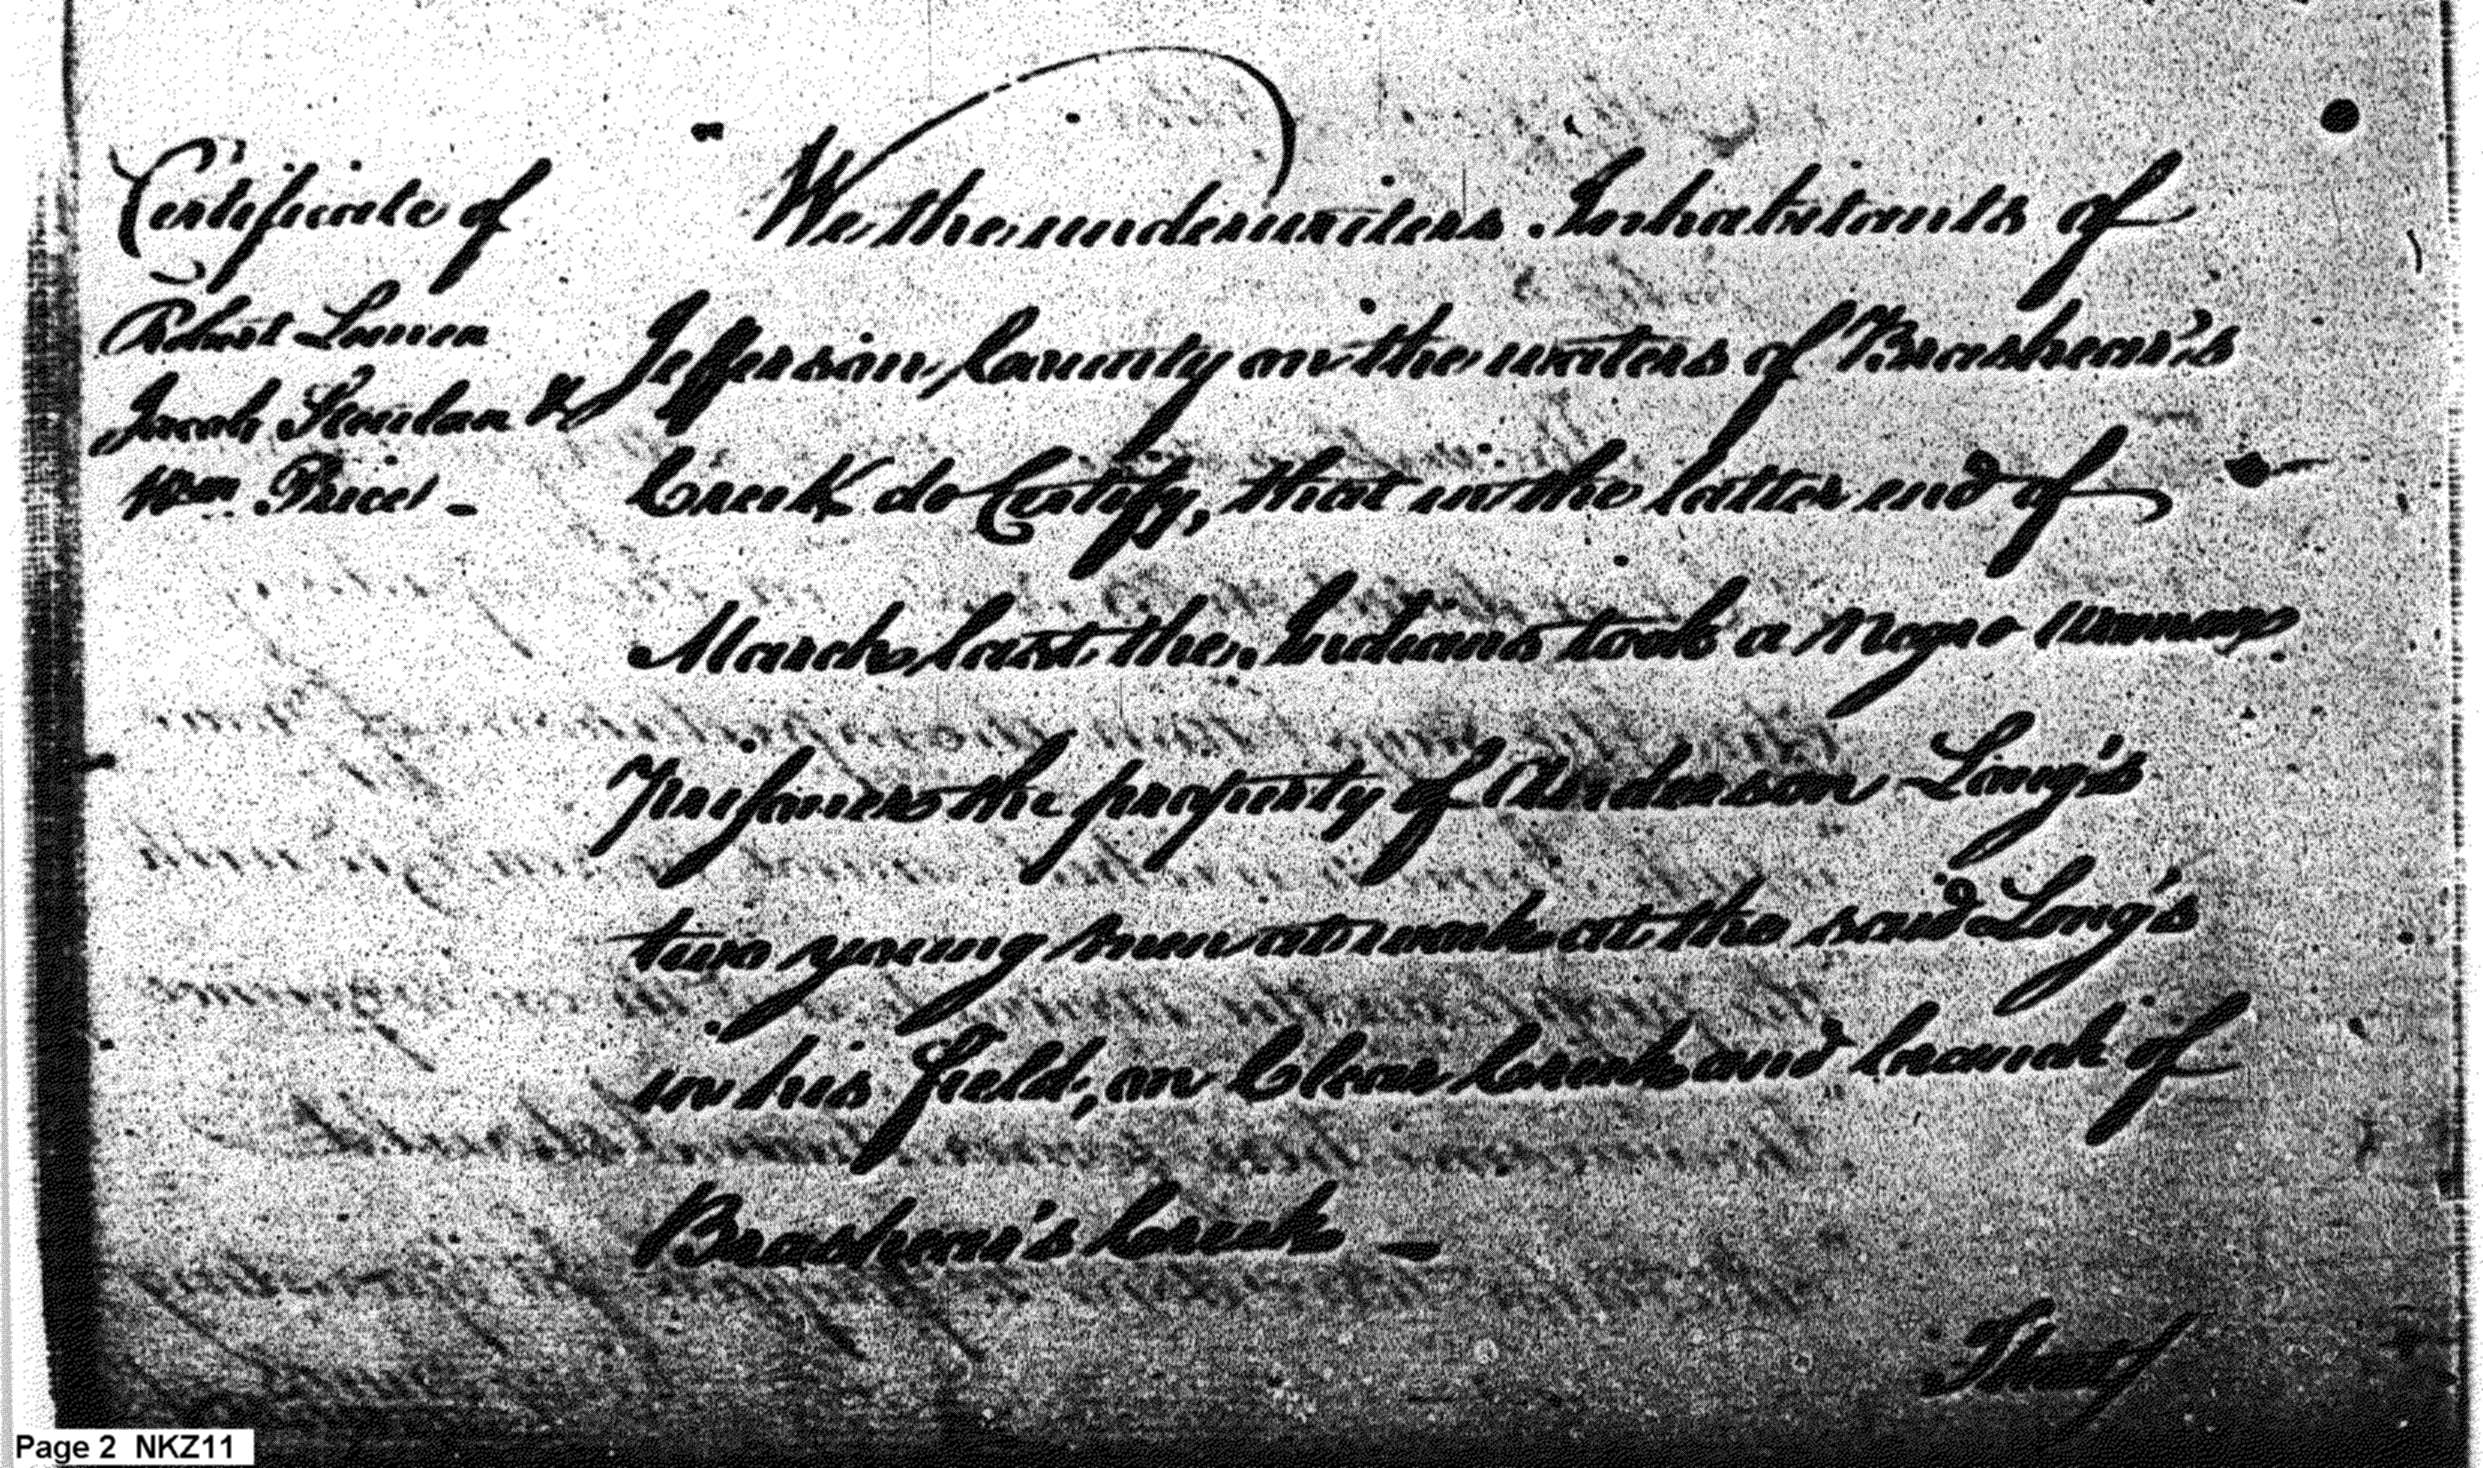 Certificate of
Robert
Jacob &
Wm. Price —
We the underwriters Inhabitants of
Jefferson County on the waters of Brashear's
Creek do Certify, that in the latter end of
March last, the Indians took a Negro Woman
Prisoner the property of Anderson Long's
two young men at work at the said Long's
in his field; on Clear Creek and branch of
Brashear's Creek —
That
Page 2 NKZ11